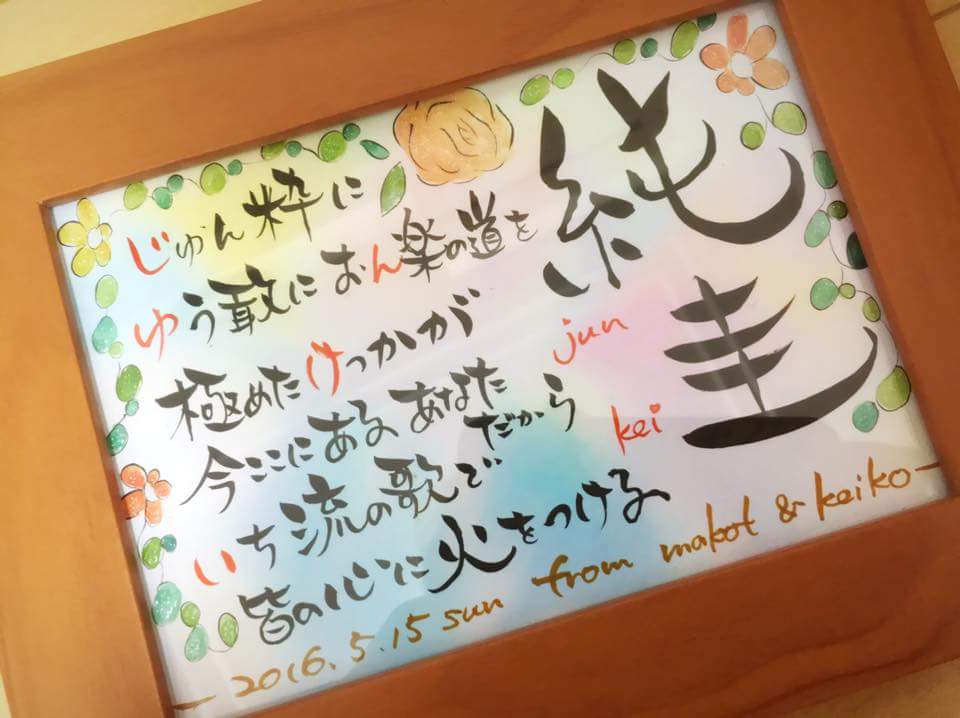 純圭
jun
kei
じゅん粋に
ゆう敢に おん楽の道を
極めた けっかが
今ここにある あなた
だから
いち流の歌で
皆の心に火をつける
-2016.5.15 sun from makot & keiko-